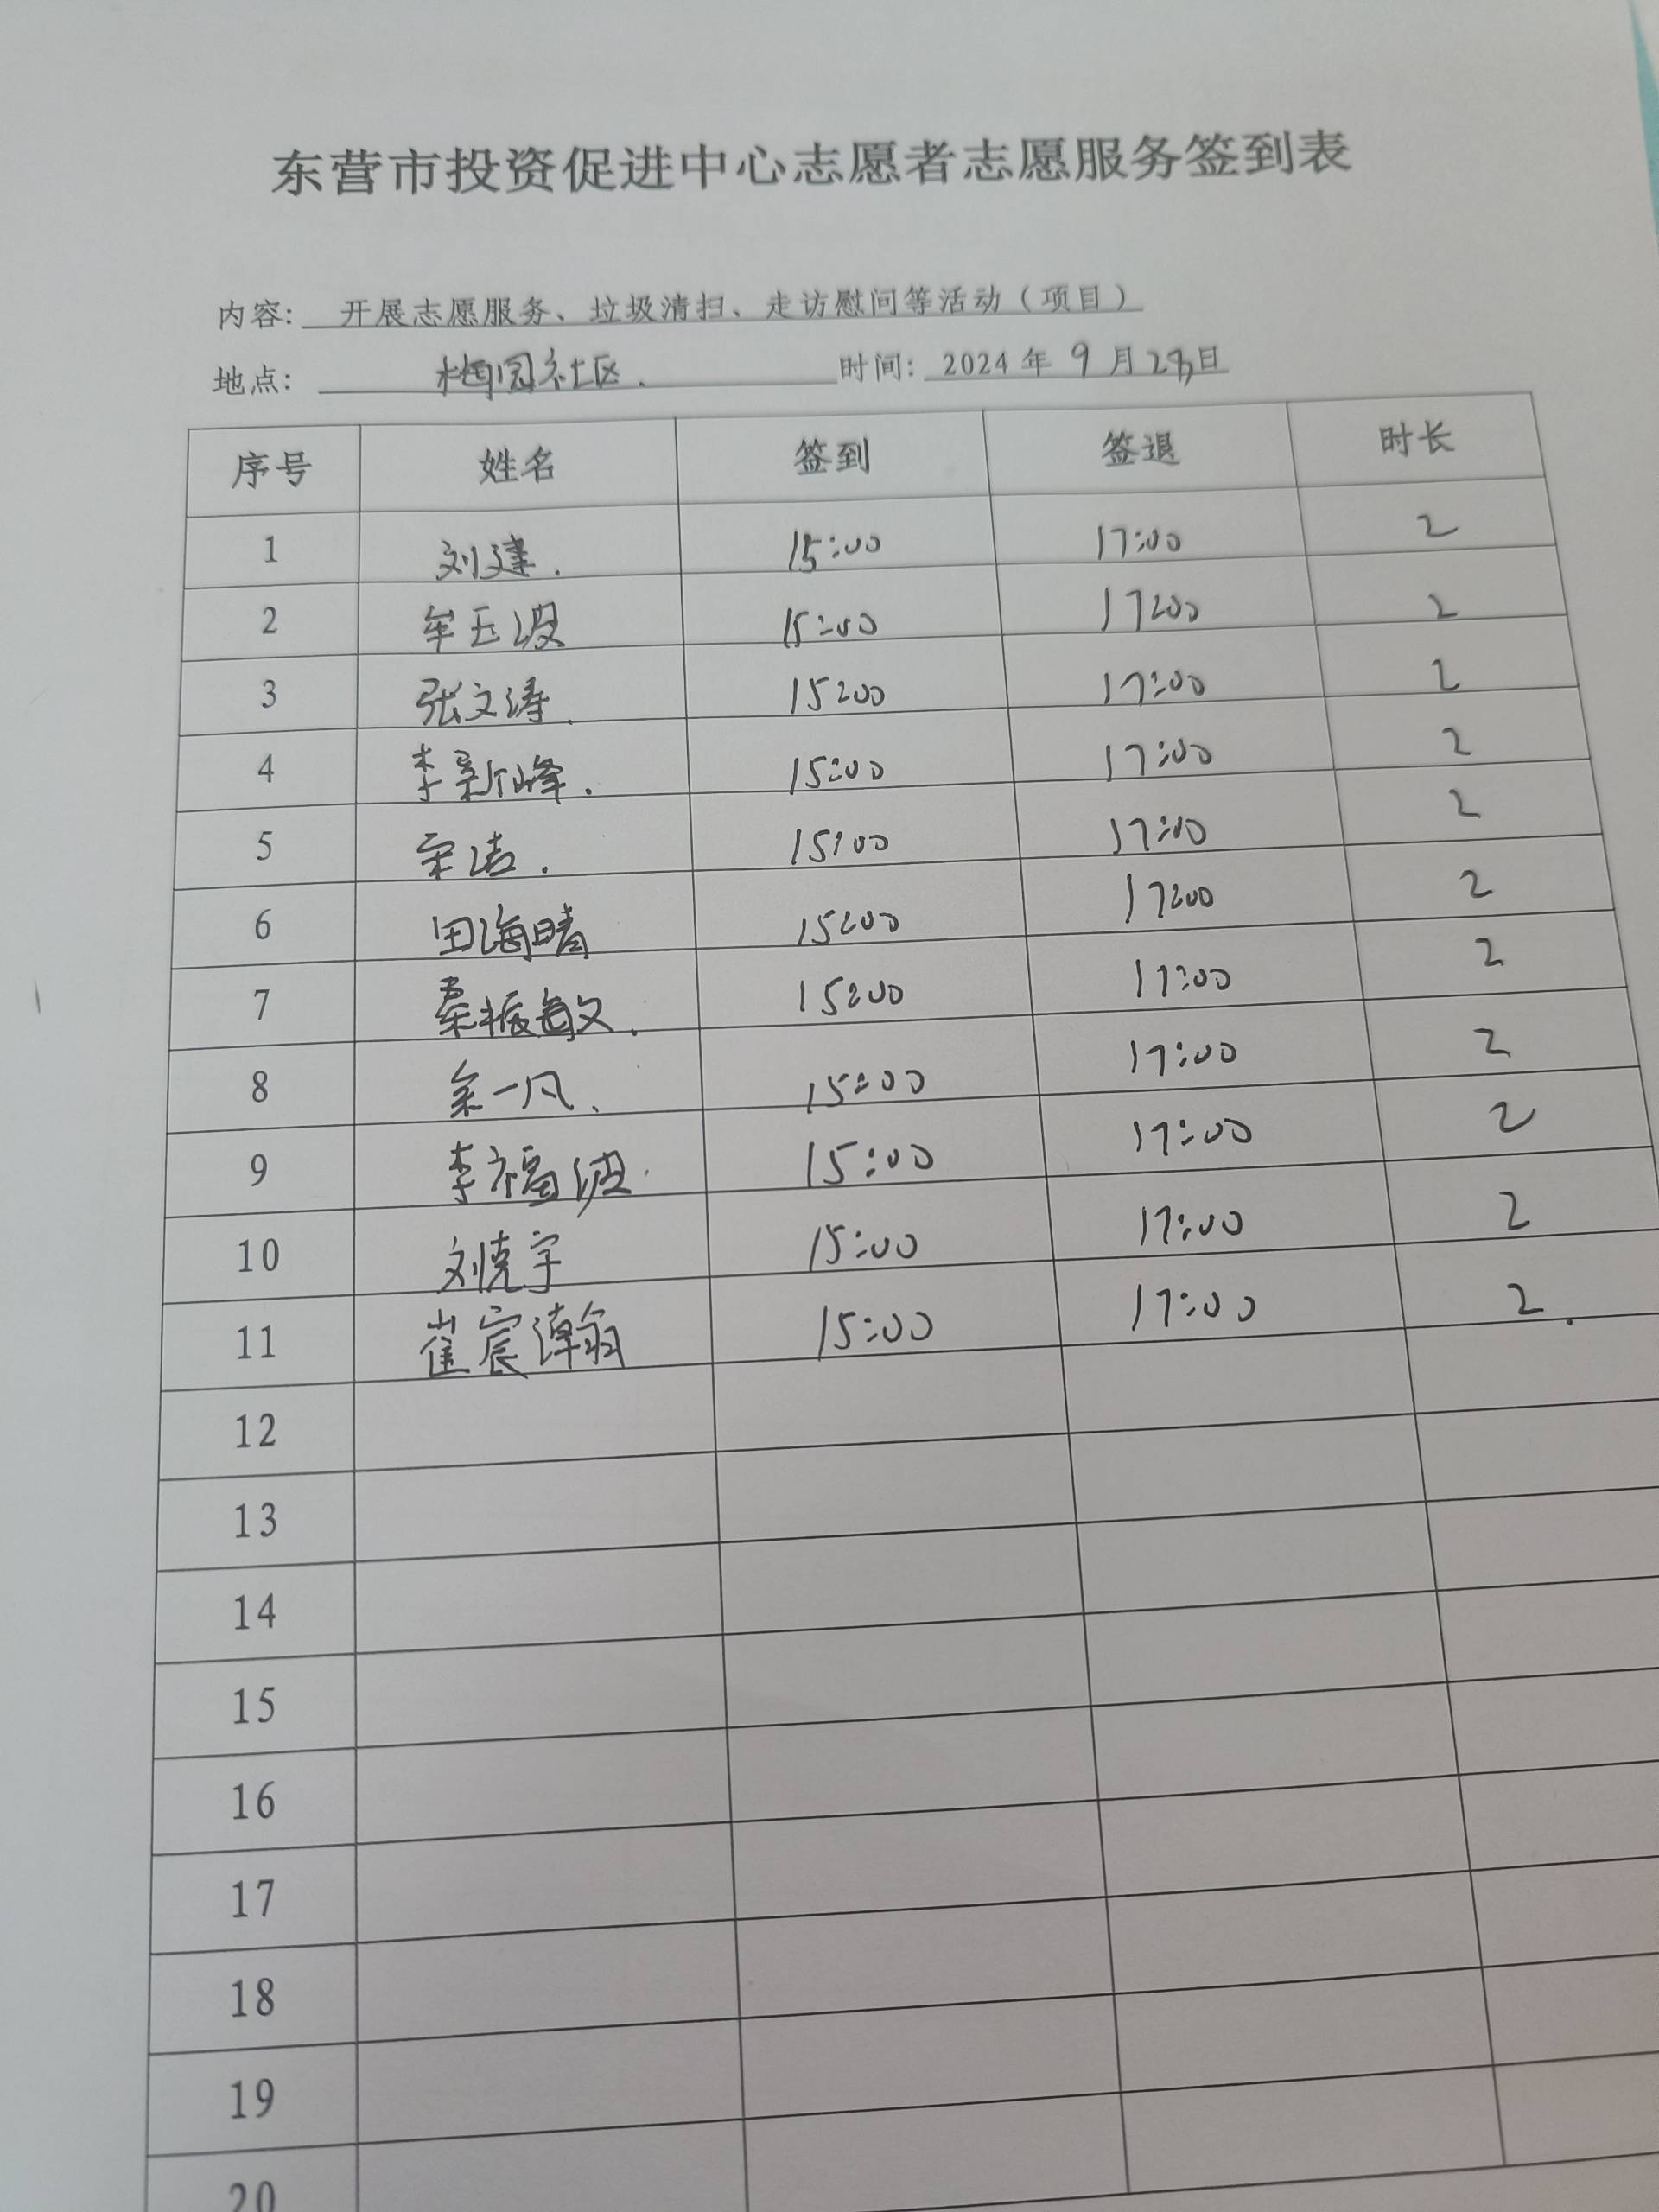 东营市投资促进中心志愿者志愿服务签到表
内容: 开展志愿服务、垃圾清扫、走访慰问等活动（项目）
地点: 园社区. 时间: 2024年9月 日
序号 姓名 签到 签退 时长
1 刘建. 15:00 17:00 2
2 牟玉波 15:00 17:00 2
3 张文涛. 15:00 17:00 2
4 李新峰. 15:00 17:00 2
5 洁. 15:00 17:00 2
6 田海晴 15:00 17:00 2
7 秦振敏. 15:00 17:00 2
8 一凡. 15:00 17:00 2
9 李福波. 15:00 17:00 2
10 刘克宇 15:00 17:00 2
11 崔宸瀚 15:00 17:00 2.
12
13
14
15
16
17
18
19
20